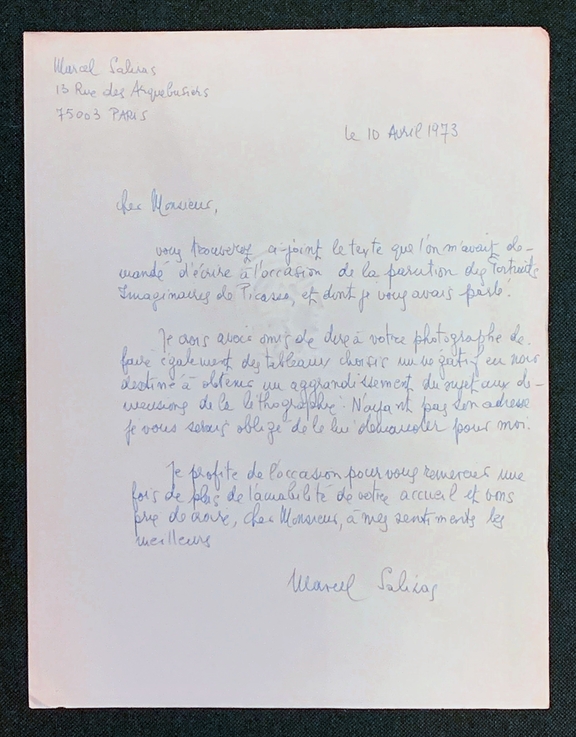 Marcel Salinas
13 Rue des Arquebusiers
75003 PARIS
le 10 Avril 1973
cher Monsieur,
vous trouverez ci-joint le texte que l'on m'avait de-
mandé d'écrire à l'occasion de la parution des Portraits
Imaginaires de Picasso, et dont je vous avais parlé.
Je crois avoir omis de dire à votre photographe de
faire également des tableaux choisis un négatif en noir
destiné à obtenir un aggrandissement du sujet aux di-
mensions de la lithographie. N'ayant pas son adresse
je vous serais obligé de le lui demander pour moi.
Je profite de l'occasion pour vous remercier une
fois de plus de l'amabilité de votre accueil et vous
prie de croire, cher Monsieur, à mes sentiments les
meilleurs
Marcel Salinas